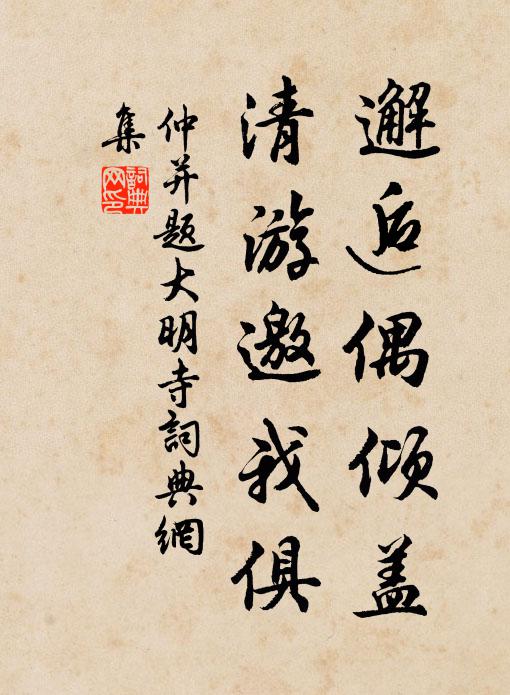 邂逅偶倾盖
清游邀我俱
仲并题大明寺詞典網
集
詞典
网印